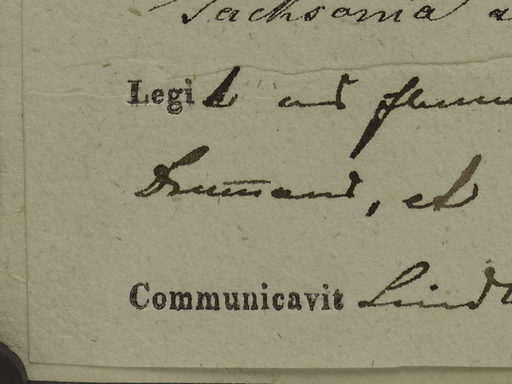 Jacksonia
Legit ad flum
Drummond, et
Communicavit Lindl